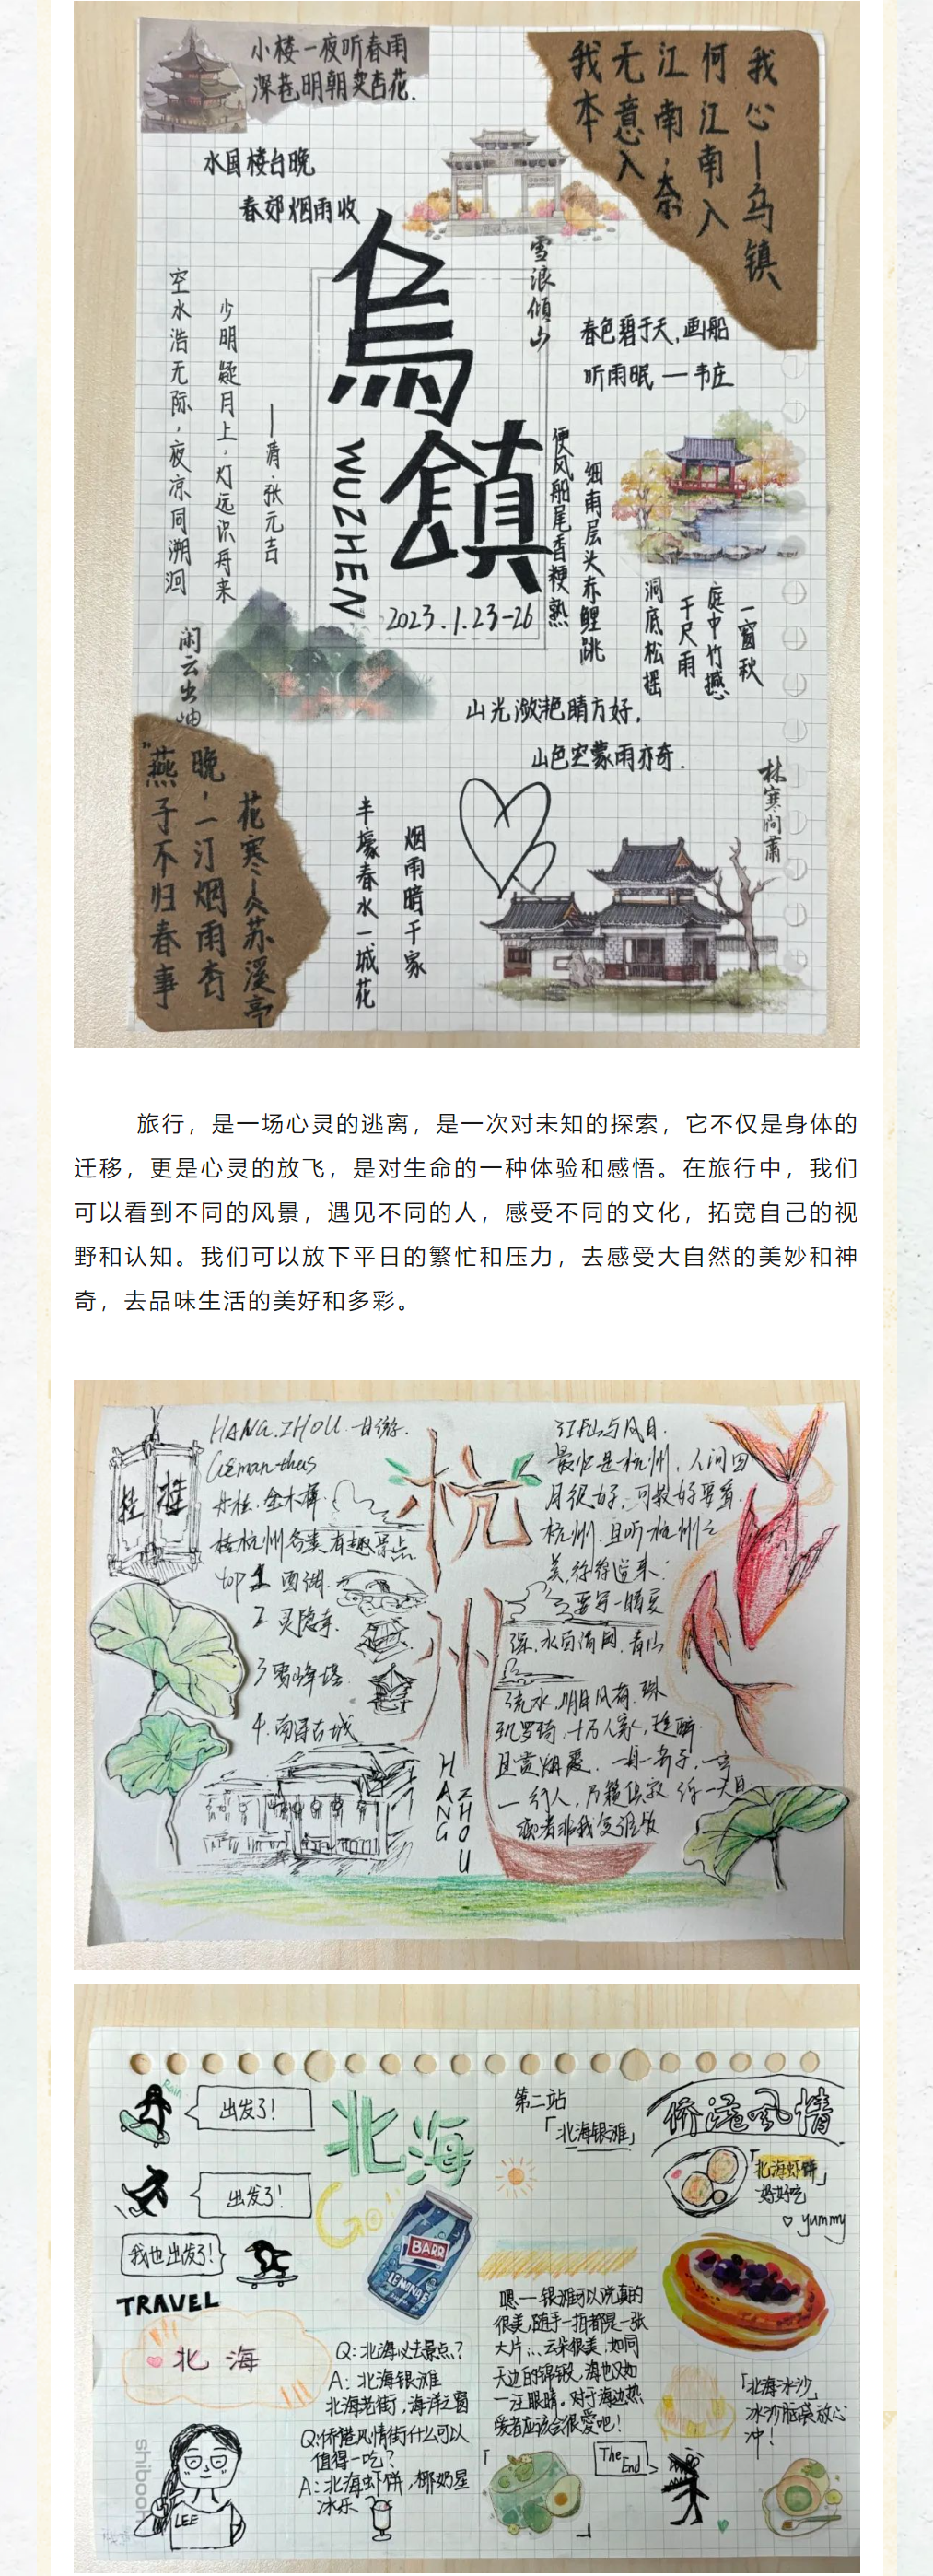 小楼一夜听春雨
深巷明朝卖杏花.
我心—乌镇
何江南入
江南,奈
无意入
我本
水国楼台晚
春郊烟雨收
烏鎮
WUZHEN
2023.1.23-26
雪浪倾山
春色碧于天,画船
听雨眠—韦庄
空水浩无际,夜凉同溯洄
少明疑月上,灯远识舟来
——清·张元吉
便风船尾香粳熟
细雨层头赤鲤跳
洞底松摇
千尺雨
庭中竹撼
一窗秋
闲云出岫
山光潋滟晴方好,
山色空蒙雨亦奇.
林寒涧肃
"燕子不归春事
晚,一汀烟雨杏
花寒—苏溪亭
半壕春水一城花
烟雨暗千家
旅行，是一场心灵的逃离，是一次对未知的探索，它不仅是身体的
迁移，更是心灵的放飞，是对生命的一种体验和感悟。在旅行中，我们
可以看到不同的风景，遇见不同的人，感受不同的文化，拓宽自己的视
野和认知。我们可以放下平日的繁忙和压力，去感受大自然的美妙和神
奇，去品味生活的美好和多彩。
HANG.ZHOU
丹桂.金木犀
杭州各类有趣景点
top 1 西湖.
2 灵隐寺.
3 雷峰塔.
4.南浔古城
桂
桂
杭州
HANG
ZHOU
最忆是杭州.人间四
月很好.可我好要看.
杭州.且听杭州之
美,徐徐道来.
流水,明月风荷.珠
玑罗琦.十万人家,
且赏烟霞.
Rain
出发了!
出发了!
我也出发了!
TRAVEL
北海
北海
GO
BARR
LEMONADE
第二站
「北海银滩」
侨港风情
「北海虾饼」
好好吃
♡ yummy
Q:北海必去景点?
A:北海银滩
北海老街,海洋之窗
Q:侨港风情街什么可以
值得一吃?
A:北海虾饼,椰奶星
冰乐
嗯——银滩可以说真的
很美,随手一拍都是一张
大片...云朵很美,如同
天边的锦缎,海也又如
一汪眼睛。对于海边热
爱者应该会很爱吧!
The End
「北海冰沙」
冰沙脑袋放心
冲!
LEE
shiboon